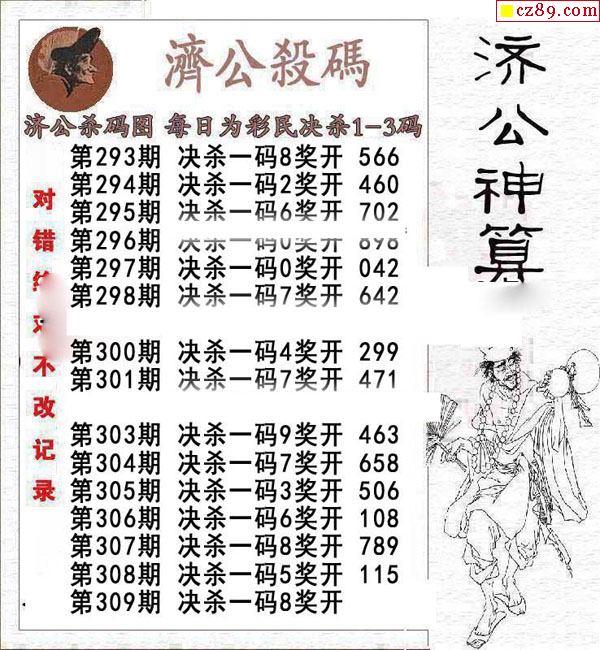 cz89.com
濟公殺碼
济公杀码图 每日为彩民决杀1-3码
第293期 决杀一码8奖开 566
第294期 决杀一码2奖开 460
第295期 决杀一码6奖开 702
第296期 决杀一码0奖开 898
第297期 决杀一码0奖开 042
第298期 决杀一码7奖开 642
第300期 决杀一码4奖开 299
第301期 决杀一码7奖开 471
第303期 决杀一码9奖开 463
第304期 决杀一码7奖开 658
第305期 决杀一码3奖开 506
第306期 决杀一码6奖开 108
第307期 决杀一码8奖开 789
第308期 决杀一码5奖开 115
第309期 决杀一码8奖开
对错 不改记录
济公神算